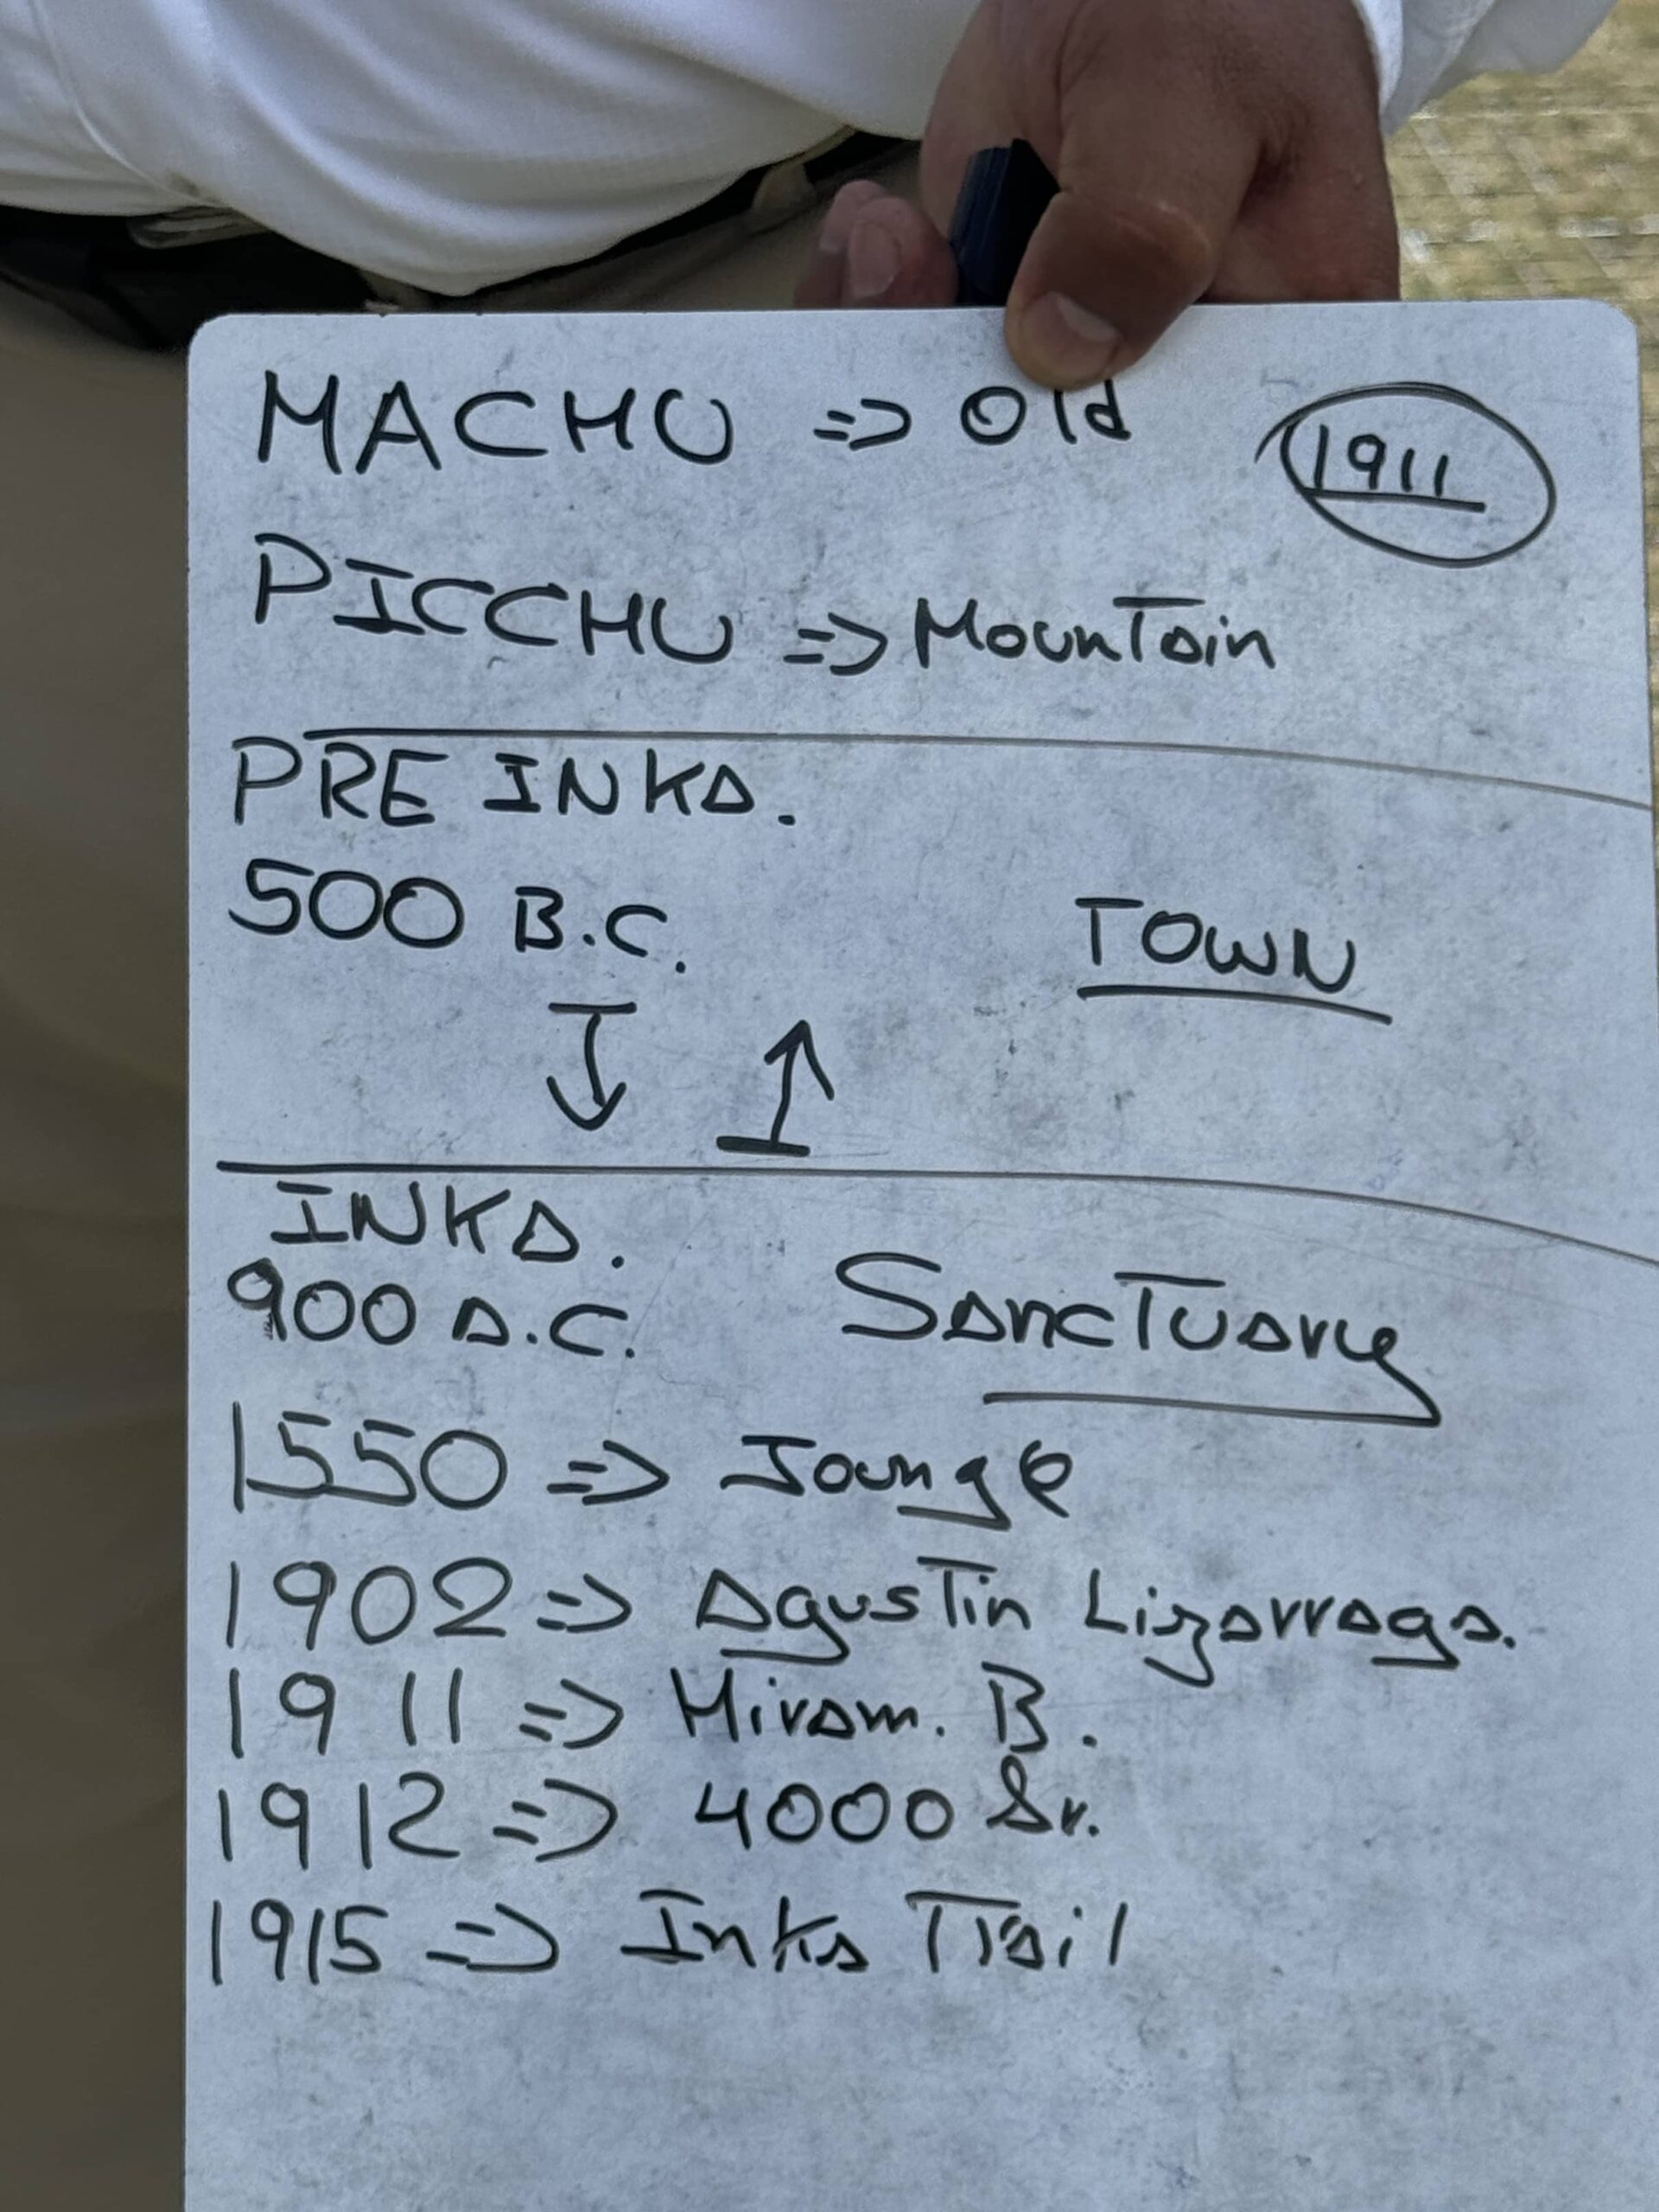 MACHU => Old
1911
PICCHU => Mountain
PRE INKA.
500 B.C.
TOWN
INKA.
900 A.C.
Sanctuary
1550 => Joungle
1902 => Agustin Lizarraga.
1911 => Hiram. B.
1912 => 4000 Ar.
1915 => Inka Trail